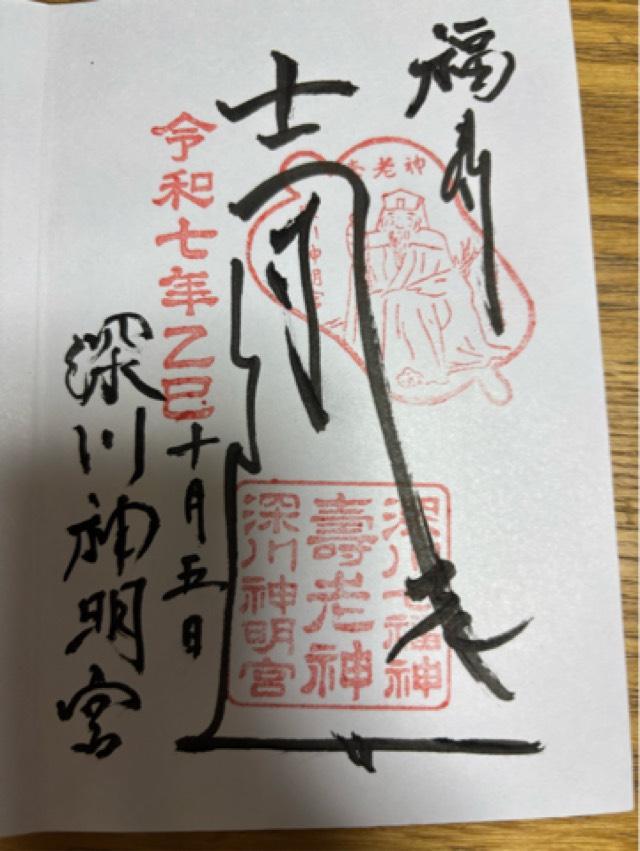 福
壽老神
深川七福神
壽老神
深川神明宮
令和七年乙巳
十月五日
深川神明宮